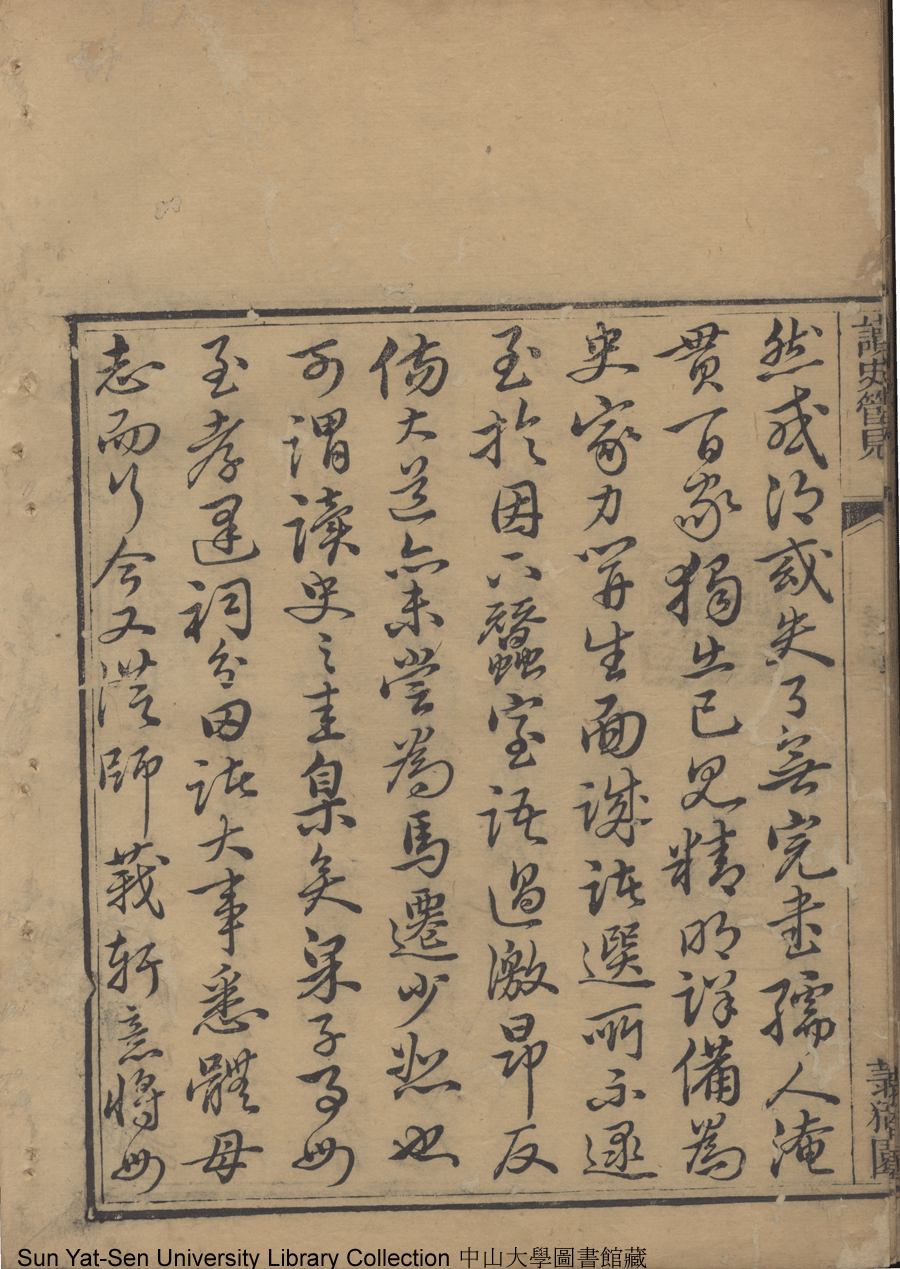 讀史管見
然或得或失了無完書孺人淹
貫百家獨出己見精明詳備為
史家力開生面誠諸選所不逮
至於因下蠶室語過激昂反
傷大道亦未嘗為馬遷少恕也
可謂讀史之圭臬矣梁子事母
至孝建祠分田諸大事悉體母
志而行今又從師莪軒意將母
Sun Yat-Sen University Library Collection 中山大學圖書館藏